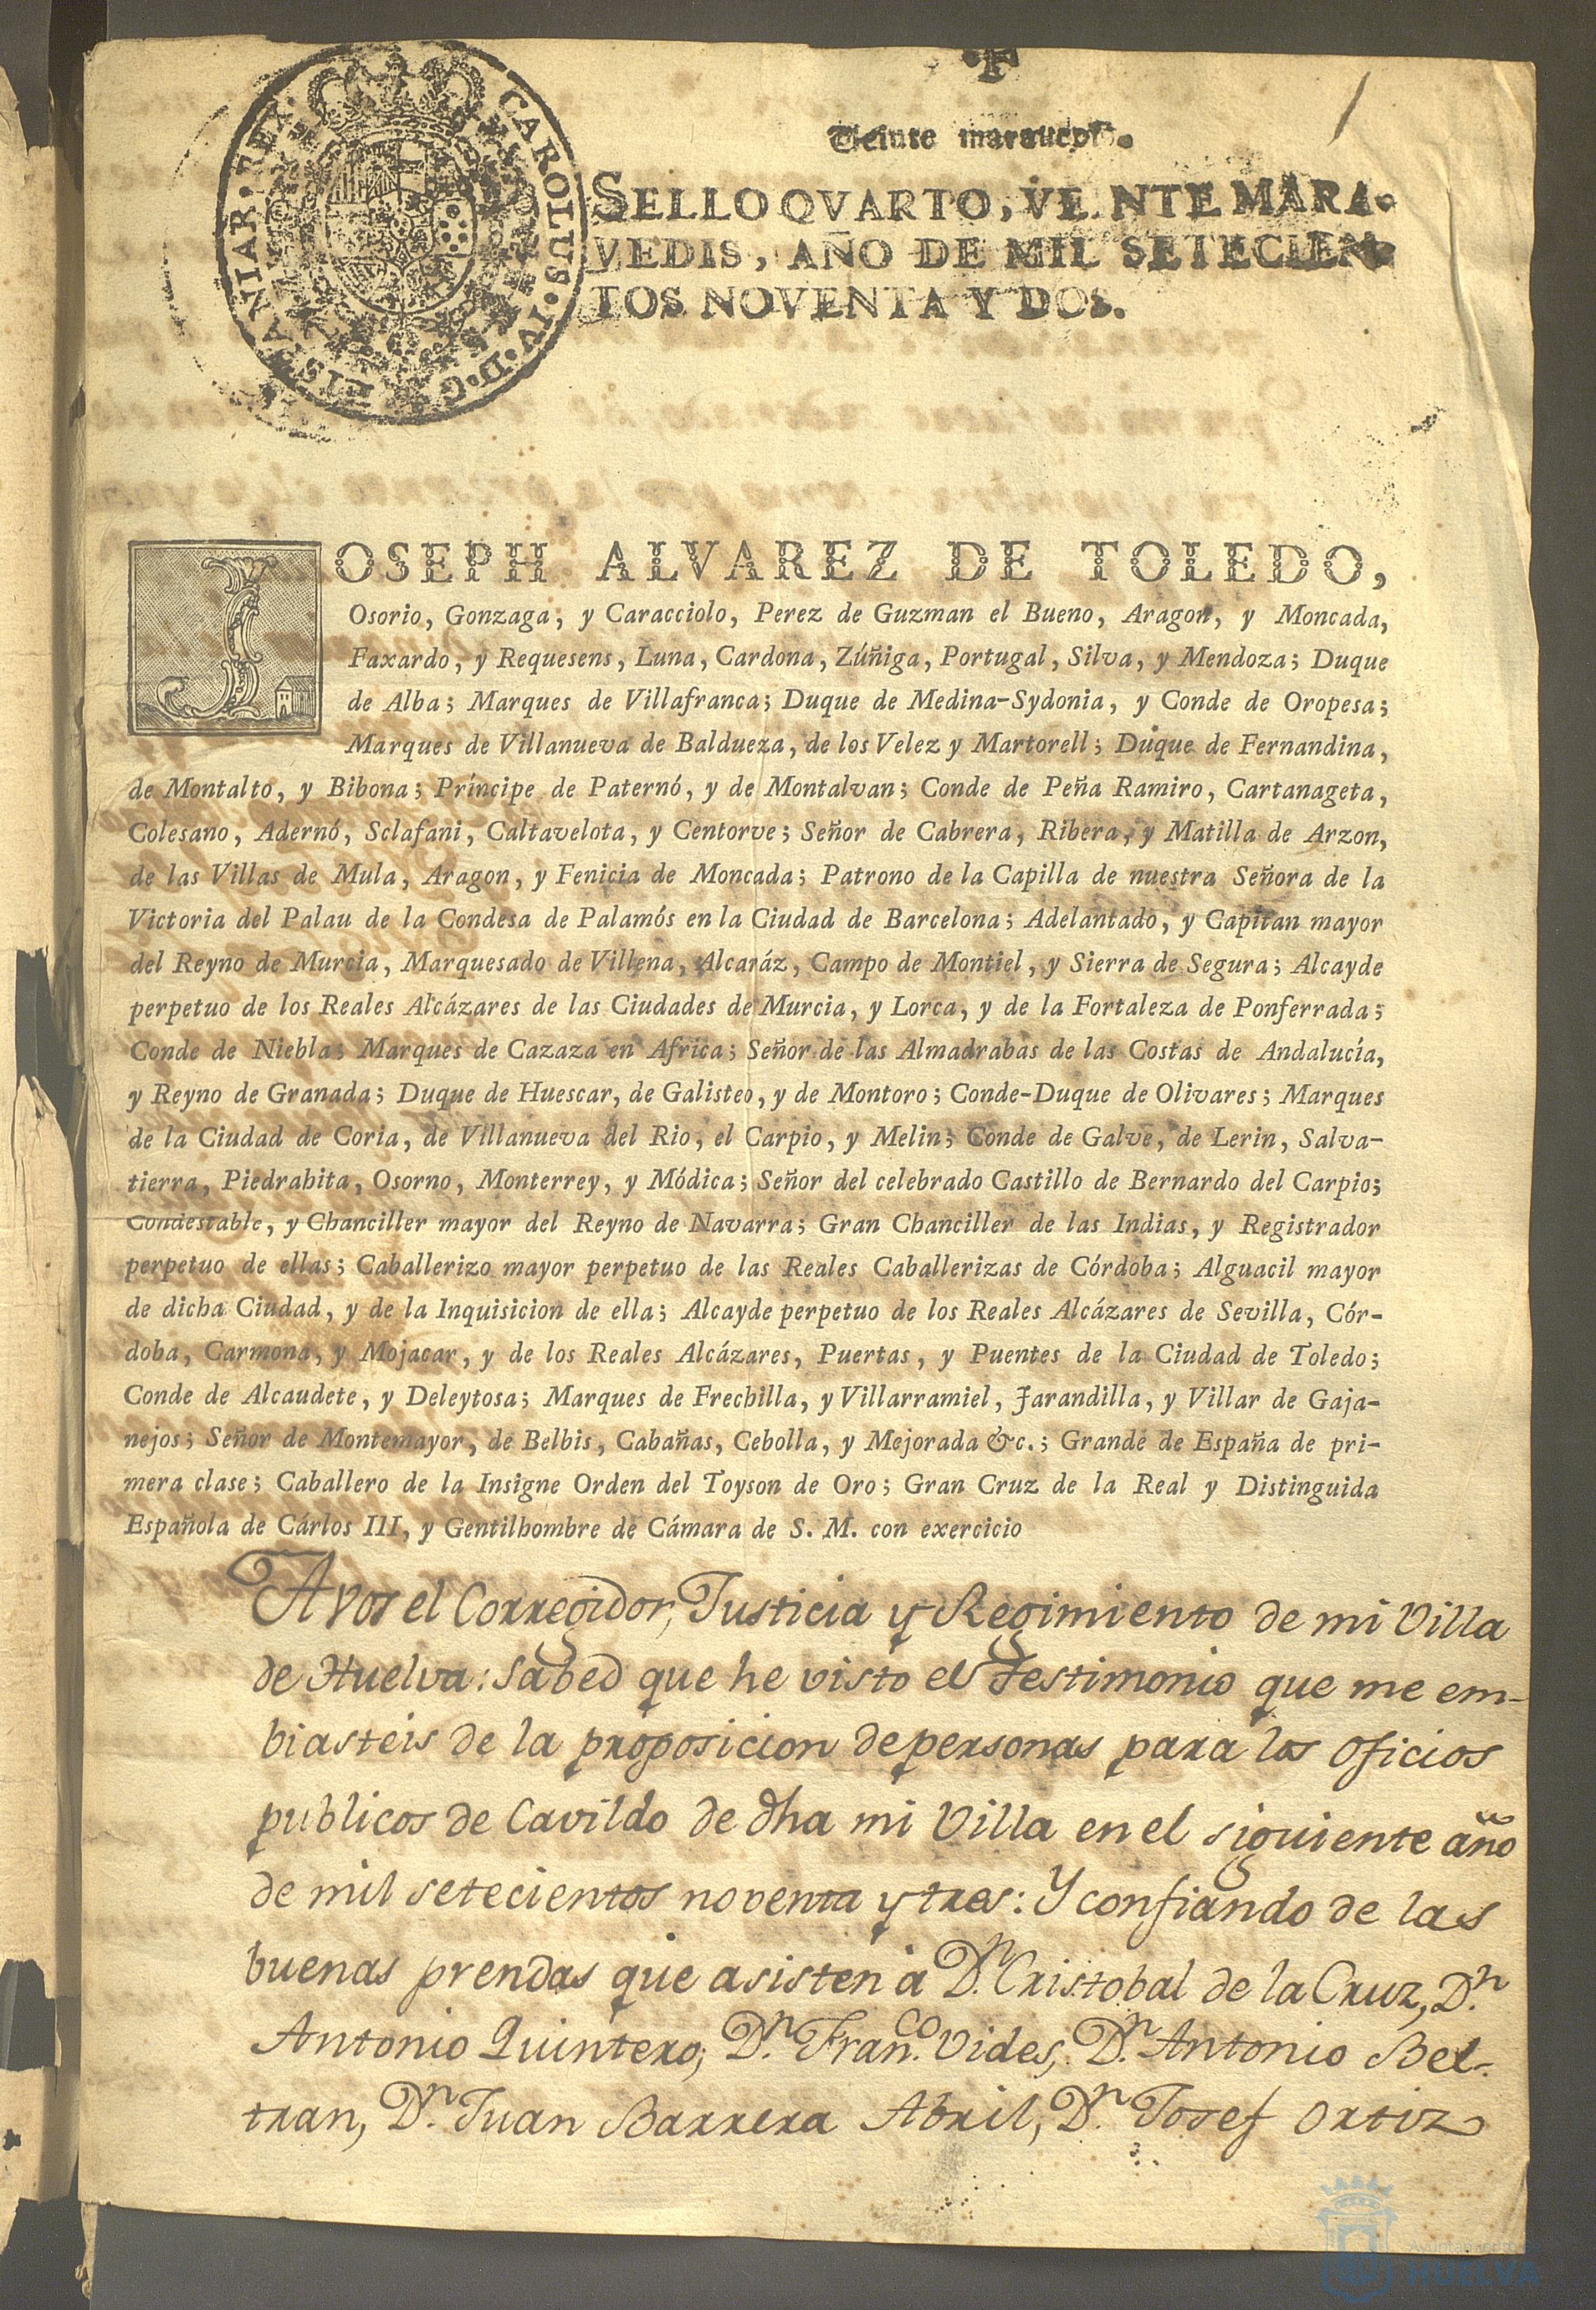 Veinte maravedis.
SELLO QVARTO, VEINTE MARA-
VEDIS, AÑO DE MIL SETECIEN-
TOS NOVENTA Y DOS.
CAROLUS·IV·D·G·HISPANIAR·REX·
JOSEPH ALVAREZ DE TOLEDO,
Osorio, Gonzaga, y Caracciolo, Perez de Guzman el Bueno, Aragon, y Moncada,
Faxardo, y Requesens, Luna, Cardona, Zúñiga, Portugal, Silva, y Mendoza; Duque
de Alba; Marques de Villafranca; Duque de Medina-Sydonia, y Conde de Oropesa;
Marques de Villanueva de Baldueza, de los Velez y Martorell; Duque de Fernandina,
de Montalto, y Bibona; Príncipe de Paternó, y de Montalvan; Conde de Peña Ramiro, Cartanageta,
Colesano, Adernó, Sclafani, Caltavelota, y Centorve; Señor de Cabrera, Ribera, y Matilla de Arzon,
de las Villas de Mula, Aragon, y Fenicia de Moncada; Patrono de la Capilla de nuestra Señora de la
Victoria del Palau de la Condesa de Palamós en la Ciudad de Barcelona; Adelantado, y Capitan mayor
del Reyno de Murcia, Marquesado de Villena, Alcaráz, Campo de Montiel, y Sierra de Segura; Alcayde
perpetuo de los Reales Alcázares de las Ciudades de Murcia, y Lorca, y de la Fortaleza de Ponferrada;
Conde de Niebla; Marques de Cazaza en Africa; Señor de las Almadrabas de las Costas de Andalucía,
y Reyno de Granada; Duque de Huescar, de Galisteo, y de Montoro; Conde-Duque de Olivares; Marques
de la Ciudad de Coria, de Villanueva del Rio, el Carpio, y Melin; Conde de Galve, de Lerin, Salva-
tierra, Piedrahita, Osorno, Monterrey, y Módica; Señor del celebrado Castillo de Bernardo del Carpio;
Condestable, y Chanciller mayor del Reyno de Navarra; Gran Chanciller de las Indias, y Registrador
perpetuo de ellas; Caballerizo mayor perpetuo de las Reales Caballerizas de Córdoba; Alguacil mayor
de dicha Ciudad, y de la Inquisicion de ella; Alcayde perpetuo de los Reales Alcázares de Sevilla, Cór-
doba, Carmona, y Mojacar, y de los Reales Alcázares, Puertas, y Puentes de la Ciudad de Toledo;
Conde de Alcaudete, y Deleytosa; Marques de Frechilla, y Villarramiel, Jarandilla, y Villar de Gaja-
nejos; Señor de Montemayor, de Belbis, Cabañas, Cebolla, y Mejorada &c.; Grande de España de pri-
mera clase; Caballero de la Insigne Orden del Toyson de Oro; Gran Cruz de la Real y Distinguida
Española de Cárlos III, y Gentilhombre de Cámara de S. M. con exercicio
A vos el Corregidor, Justicia y Regimiento de mi Villa
de Huelva: sabed que he visto el Testimonio que me em-
biasteis de la proposicion de personas para los oficios
publicos de Cavildo de dha mi Villa en el siguiente año
de mil setecientos noventa y tres: Y confiando de las
buenas prendas que asisten à Dn. Cristobal de la Cruz, Dn.
Antonio Quintero; Dn. Franco. Vides, Dn. Antonio Bel-
tran, Dn. Juan Barrera Abril, Dn. Josef Ortiz
Ayuntamiento
HUELVA